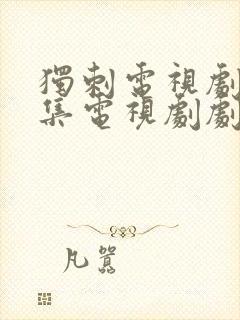 獨刺電視劇
集電視劇劇
凡囂